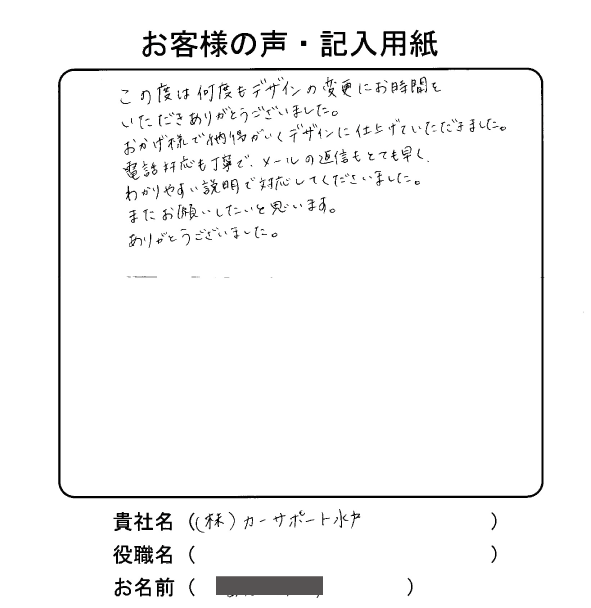 お客様の声・記入用紙
この度は何度もデザインの変更にお時間を
いただきありがとうございました。
おかげ様で納得がいくデザインに仕上げていただきました。
電話対応も丁寧で、メールの返信もとても早く、
わかりやすい説明で対応してくださいました。
またお願いしたいと思います。
ありがとうございました。
貴社名（(株)カーサポート水戸）
役職名（　）
お名前（　）